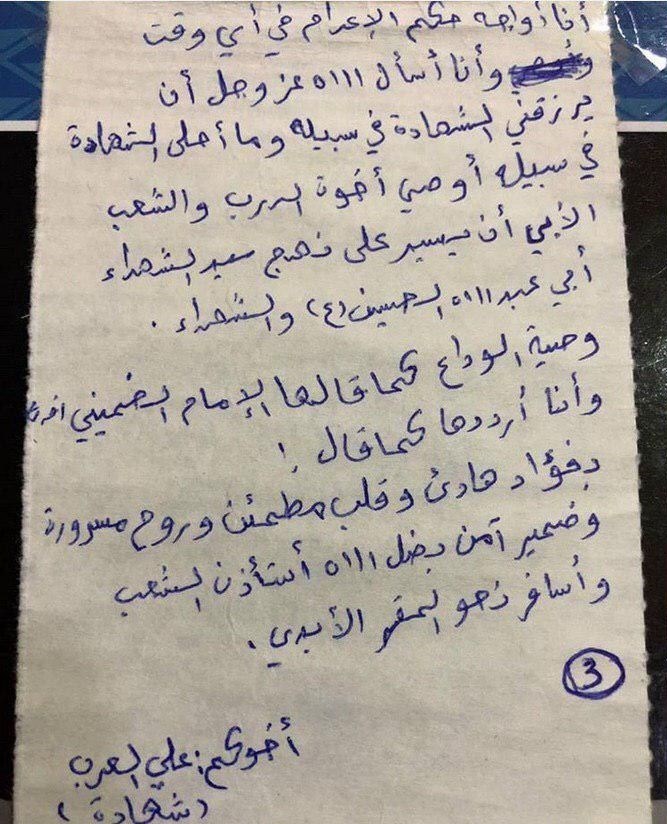 أنا أواجه حكم الإعدام في أي وقت
وأنا أسأل الله عز وجل أن
يرزقني الشهادة في سبيله وما أحلى الشهادة
في سبيله أوصي أخوة الدرب والشعب
الأبي أن يسير على نهج سيد الشهداء
أبي عبد الله الحسين (ع) والشهداء .
وصية الوداع كما قالها الإمام الخميني
وأنا أرددها كما قال :
بفؤاد هادئ وقلب مطمئن وروح مسرورة
وضمير آمن بضل الله أستأذن الشعب
وأسافر نحو المقر الأبدي .
3
أخوكم: علي العرب
(شهادة)